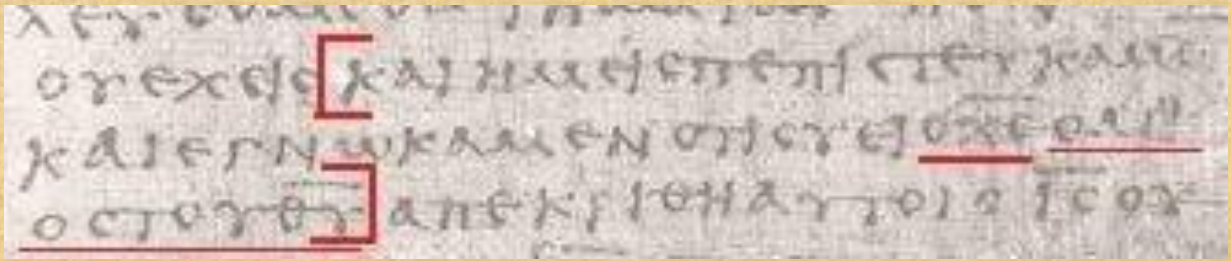 ουεχεις[καιημειςπεπιστευκαμε
καιεγνωκαμενοτισυειοχ̅ς̅οαγι
οςτουθ̅υ̅]απεκριθηαυτοιςοι̅ς̅ου